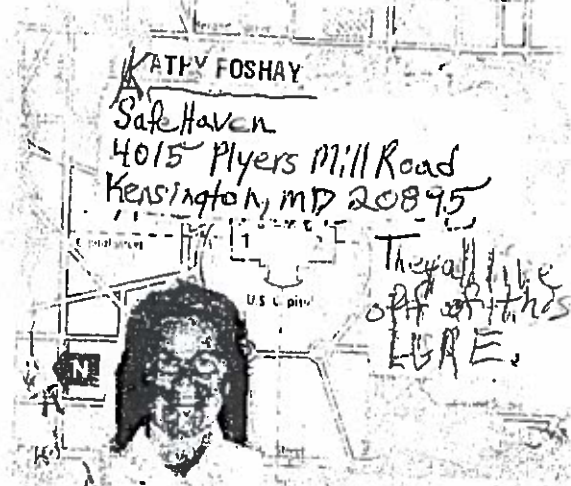 KATHY FOSHAY
Safe Haven
4015 Plyers Mill Road
Kensington, MD 20895
1
U.S. Capitol
They all live
off of this
LURE.
N